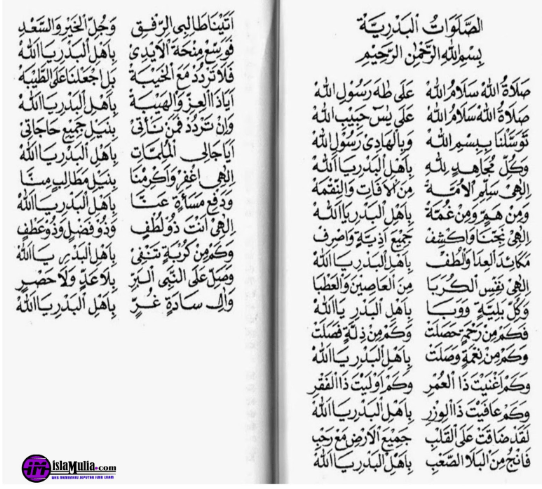 الصَّلَوَاتُ الْبَدْرِيَّة
بِسْمِ اللهِ الرَّحْمٰنِ الرَّحِيْمِ
صَلَاةُ اللهْ سَلَامُ اللهْ عَلَى طٰهَ رَسُوْلِ اللهْ
صَلَاةُ اللهْ سَلَامُ اللهْ عَلَى يٰسٓ حَبِيْبِ اللهْ
تَوَسَّلْنَا بِبِسْمِ اللهْ وَبِالْهَادِيْ رَسُوْلِ اللهْ
وَكُلِّ مُجَاهِدٍ لِلّٰهِ بِاَهْلِ الْبَدْرِ يَا اَللهْ
اِلٰهِيْ سَلِّمِ الْأُمَّة مِنَ الْاٰفَاتِ وَالنِّقْمَةْ
وَمِنْ هَمٍّ وَمِنْ غُمَّةْ بِاَهْلِ الْبَدْرِ يَا اَللهْ
اِلٰهِيْ نَجِّنَا وَاكْشِفْ جَمِيْعَ اَذِيَّةٍ وَاصْرِفْ
مَكَائِدَ الْعِدَا وَالْطُفْ بِاَهْلِ الْبَدْرِ يَا اَللهْ
اِلٰهِيْ نَفِّسِ الْكُرَبَا مِنَ الْعَاصِيْنَ وَالْعَطْبَا
وَكُلَّ بَلِيَّةٍ وَوَبَا بِاَهْلِ الْبَدْرِ يَا اَللهْ
فَكَمْ مِنْ رَحْمَةٍ حَصَلَتْ وَكَمْ مِنْ ذِلَّةٍ فَصَلَتْ
وَكَمْ مِنْ نِعْمَةٍ وَصَلَتْ بِاَهْلِ الْبَدْرِ يَا اَللهْ
وَكَمْ اَغْنَيْتَ ذَا الْعُمْرِ وَكَمْ اَوْلَيْتَ ذَا الْفَقْرِ
وَكَمْ عَافَيْتَ ذَا الْوِزْرِ بِاَهْلِ الْبَدْرِ يَا اَللهْ
لَقَدْ ضَاقَتْ عَلَى الْقَلْبِ جَمِيْعُ الْاَرْضِ مَعْ رَحْبِ
فَانْجُ مِنَ الْبَلَا الصَّعْبِ بِاَهْلِ الْبَدْرِ يَا اَللهْ
اَتَيْنَا طَالِبِي الرِّفْقِ وَجُلِّ الْخَيْرِ وَالسَّعْدِ
فَوَسِّعْ مِنْحَةَ الْاَيْدِيْ بِاَهْلِ الْبَدْرِ يَا اَللهْ
فَلَا تَرْدُدْ مَعَ الْخَيْبَةْ بَلِ اجْعَلْنَا عَلَى الطَّيْبَةْ
اَيَا ذَا الْعِزِّ وَالْهَيْبَةْ بِاَهْلِ الْبَدْرِ يَا اَللهْ
وَاِنْ تَرْدُدْ فَمَنْ نَأْتِيْ بِنَيْلِ جَمِيْعِ حَاجَاتِيْ
اَيَا جَالِي الْمُلِمَّاتِ بِاَهْلِ الْبَدْرِ يَا اَللهْ
اِلٰهِي اغْفِرْ وَاَكْرِمْنَا بِنَيْلِ مَطَالِبٍ مِنَّا
وَدَفْعِ مَسَاءَةٍ عَنَّا بِاَهْلِ الْبَدْرِ يَا اَللهْ
اِلٰهِيْ اَنْتَ ذُوْ لُطْفٍ وَذُوْ فَضْلٍ وَذُوْ عَطْفٍ
وَكَمْ مِنْ كُرْبَةٍ تَنْفِيْ بِاَهْلِ الْبَدْرِ يَا اَللهْ
وَصَلِّ عَلَى النَّبِي الْبَرِّ بِلَا عَدٍّ وَلَا حَصْرٍ
وَاٰلِ سَادَةٍ غُرٍّ بِاَهْلِ الْبَدْرِ يَا اَللهْ
islaMulia.com